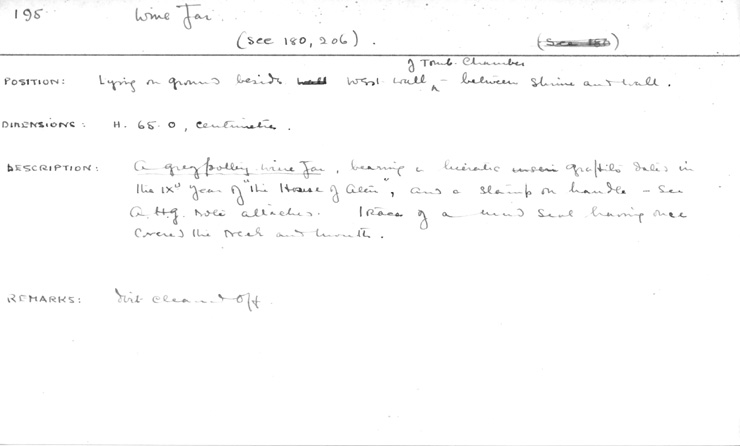 195 Wine Jar
(See 180, 206). (See 180)
of Tomb. Chamber
POSITION: Lying on ground beside wall west wall ^ - between shrine and wall.
DIMENSIONS: H. 65.0, centimetres.
DESCRIPTION: A grey pottery wine Jar, bearing a hieratic graffito dated in
the IXth year of "The House of Aten", and a stamp on handle - see
A.H.G. note attached. Traces of a mud seal having once
covered the neck and mouth.
REMARKS: Dirt cleaned off.